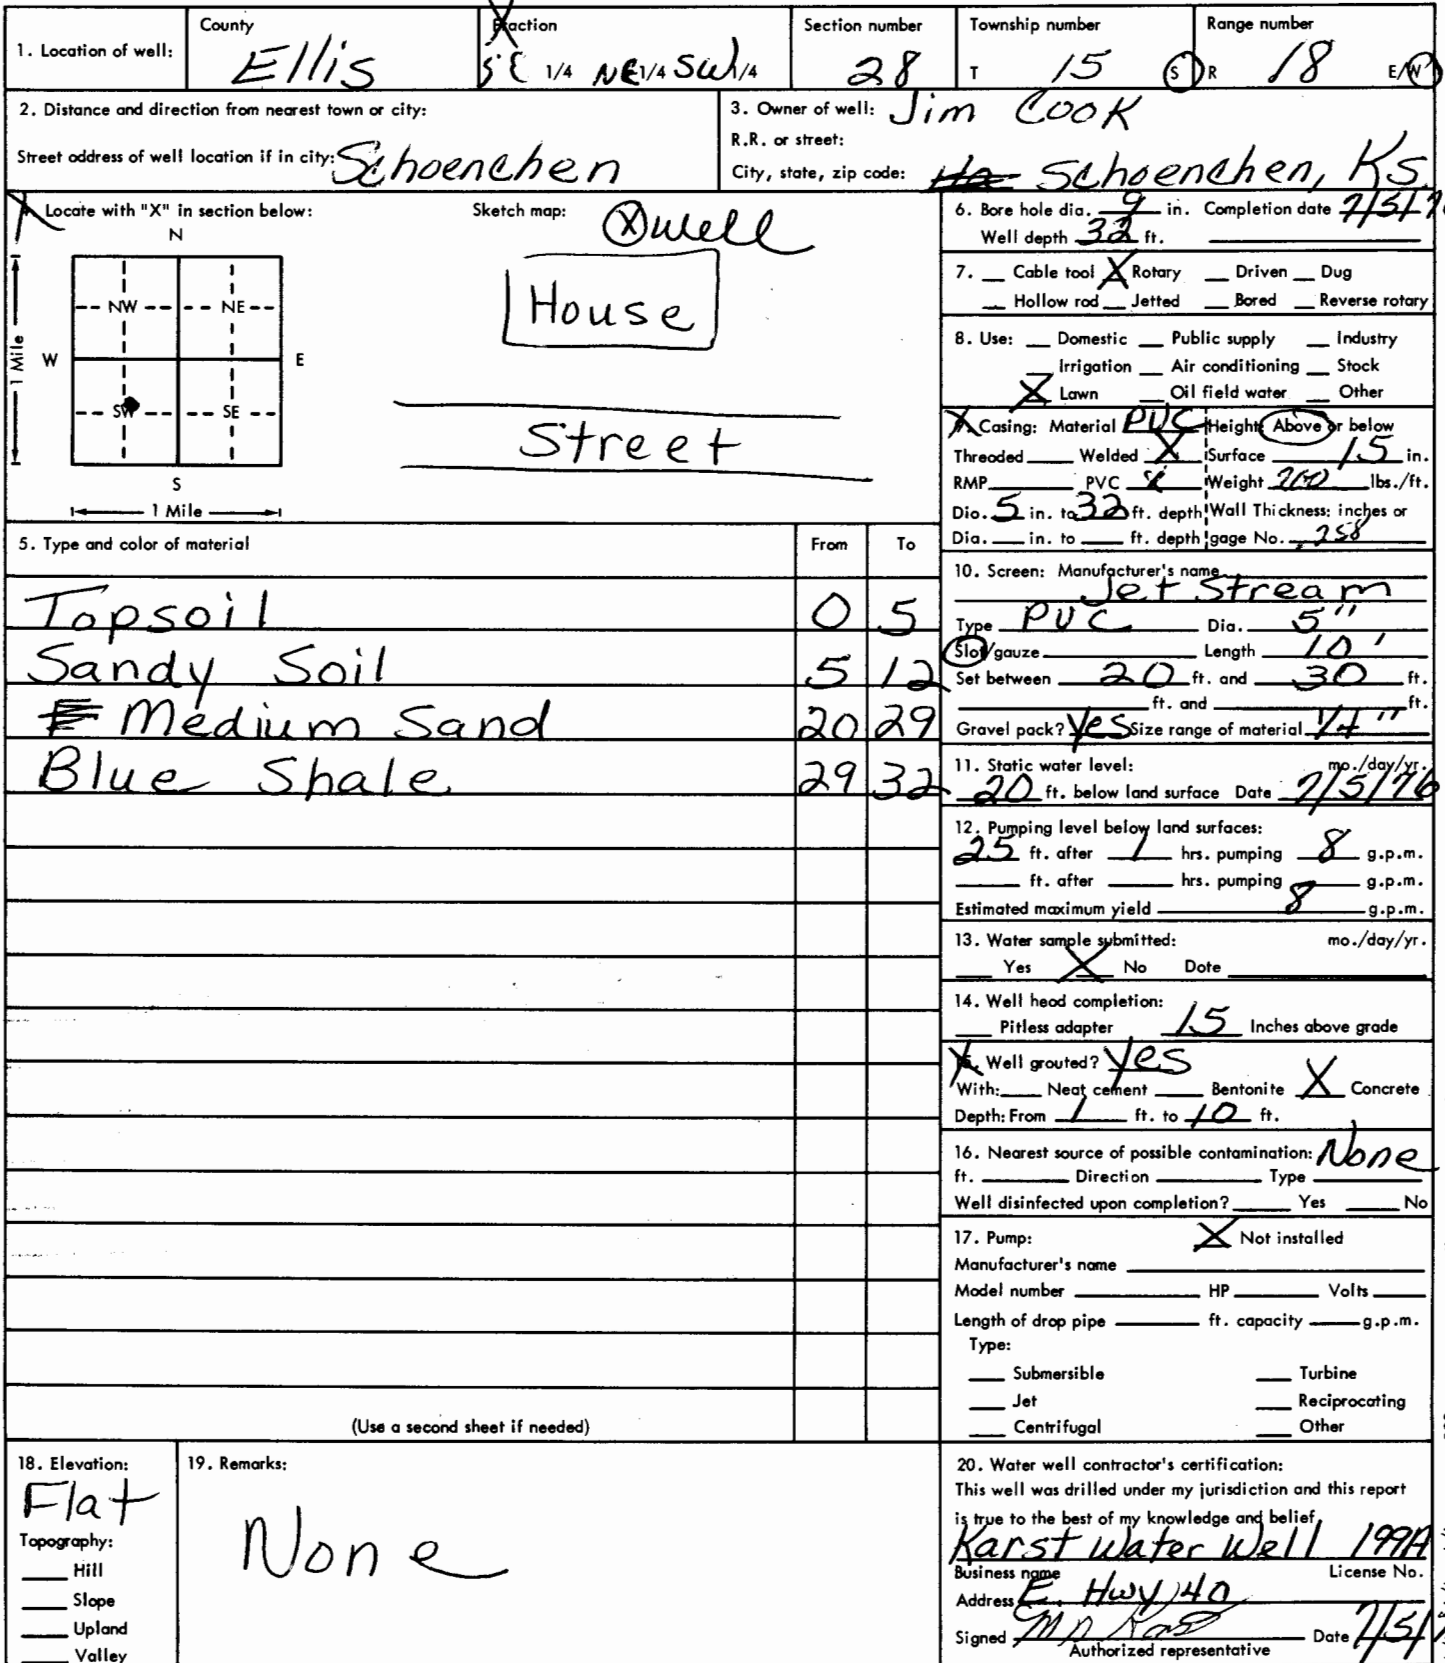 1. Location of well: County Ellis Fraction SE 1/4 NE 1/4 SW 1/4 Section number 28 Township number T 15 S Range number R 18 E/W
2. Distance and direction from nearest town or city:
Street address of well location if in city: Schoenchen
3. Owner of well: Jim Cook
R.R. or street:
City, state, zip code: Schoenchen, Ks.
Locate with "X" in section below:
N
NW NE
W E
SW SE
S
1 Mile
1 Mile
Sketch map:
X well
House
Street
6. Bore hole dia. 9 in. Completion date 7/5/7
Well depth 32 ft.
7. __ Cable tool X Rotary __ Driven __ Dug
__ Hollow rod __ Jetted __ Bored __ Reverse rotary
8. Use: __ Domestic __ Public supply __ Industry
__ Irrigation __ Air conditioning __ Stock
X Lawn __ Oil field water __ Other
Casing: Material PVC Height: Above or below
Threaded ____ Welded X Surface 15 in.
RMP ____ PVC X Weight 200 lbs./ft.
Dia. 5 in. to 32 ft. depth Wall Thickness: inches or
Dia. ___ in. to ___ ft. depth gage No. .258
5. Type and color of material From To
Topsoil 0 5
Sandy Soil 5 12
Medium Sand 20 29
Blue Shale 29 32
(Use a second sheet if needed)
10. Screen: Manufacturer's name
Jet Stream
Type PVC Dia. 5"
Slot/gauze ____ Length 10'
Set between 20 ft. and 30 ft.
____ ft. and ____ ft.
Gravel pack? Yes Size range of material 1/4"
11. Static water level: mo./day/yr.
20 ft. below land surface Date 7/5/76
12. Pumping level below land surfaces:
25 ft. after 1 hrs. pumping 8 g.p.m.
____ ft. after ____ hrs. pumping ____ g.p.m.
Estimated maximum yield 8 g.p.m.
13. Water sample submitted: mo./day/yr.
__ Yes X No Date ____
14. Well head completion:
__ Pitless adapter 15 Inches above grade
15. Well grouted? Yes
With: __ Neat cement __ Bentonite X Concrete
Depth: From 1 ft. to 10 ft.
16. Nearest source of possible contamination: None
ft. ____ Direction ____ Type ____
Well disinfected upon completion? ____ Yes ____ No
17. Pump: X Not installed
Manufacturer's name ____
Model number ____ HP ____ Volts ____
Length of drop pipe ____ ft. capacity ____ g.p.m.
Type:
__ Submersible __ Turbine
__ Jet __ Reciprocating
__ Centrifugal __ Other
18. Elevation:
Flat
Topography:
__ Hill
__ Slope
__ Upland
__ Valley
19. Remarks:
None
20. Water well contractor's certification:
This well was drilled under my jurisdiction and this report
is true to the best of my knowledge and belief.
Karst Water Well 199A
Business name License No.
Address E. Hwy 40
Signed Date 7/5/7
Authorized representative